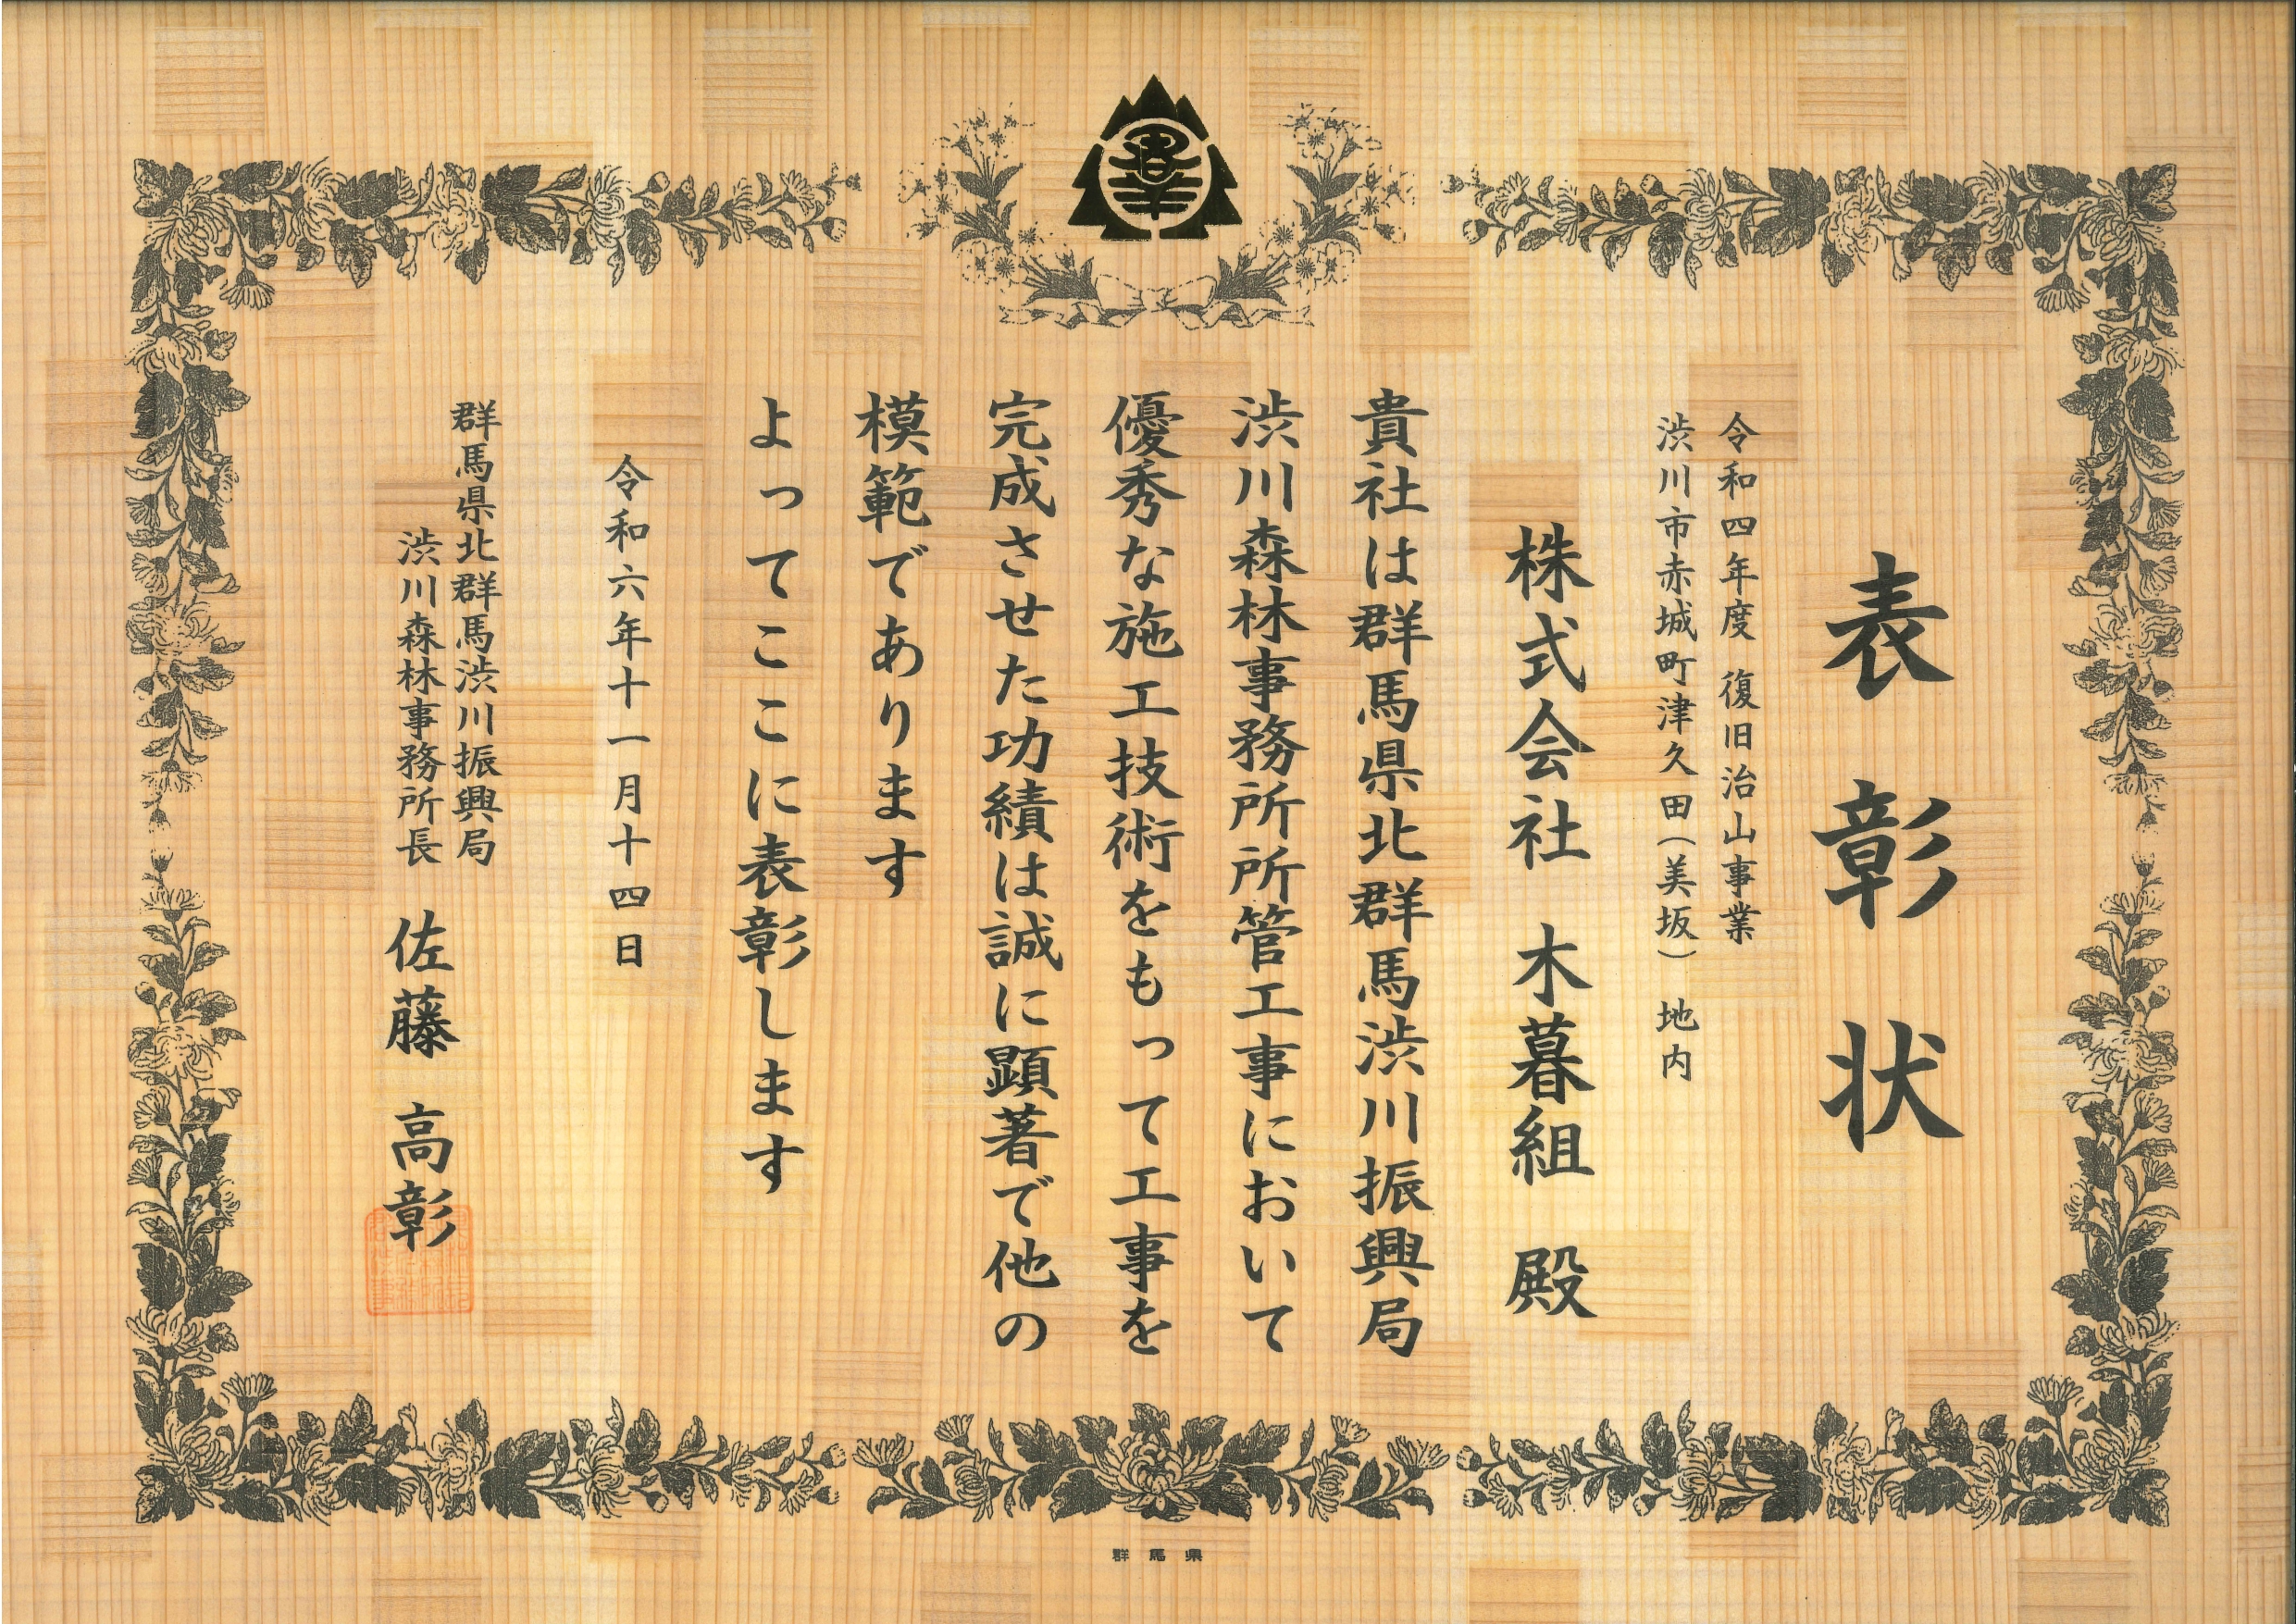 表彰状
令和四年度 復旧治山事業
渋川市赤城町津久田(美坂) 地内
株式会社 木暮組 殿
貴社は群馬県北群馬渋川振興局
渋川森林事務所所管工事において
優秀な施工技術をもって工事を
完成させた功績は誠に顕著で他の
模範であります
よってここに表彰します
令和六年十一月十四日
群馬県北群馬渋川振興局
渋川森林事務所長 佐藤 高彰
群馬県